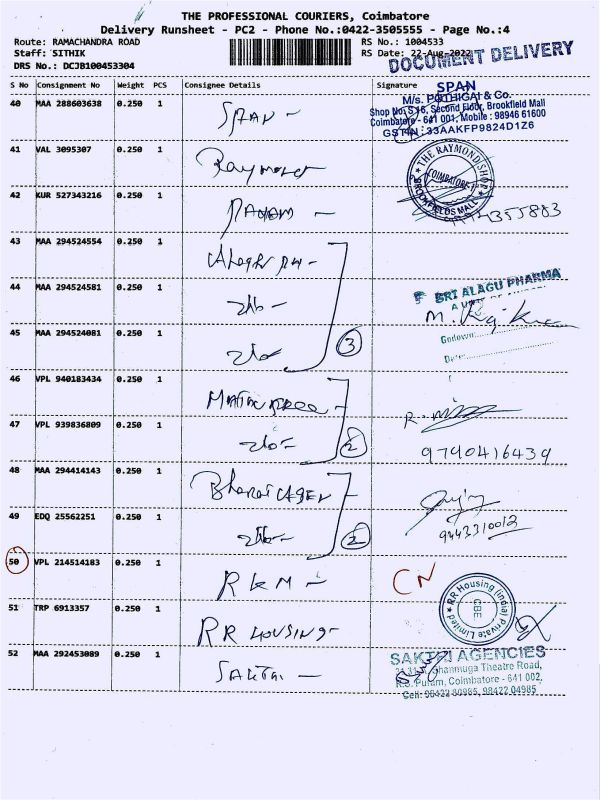 THE PROFESSIONAL COURIERS, Coimbatore
Delivery Runsheet - PC2 - Phone No.:0422-3505555 - Page No.:4
Route: RAMACHANDRA ROAD RS No.: 1004533
Staff: SITHIK RS Date: 22-Aug-2022
DRS No.: DCJB100453304
DOCUMENT DELIVERY
S No Consignment No Weight PCS Consignee Details Signature
40 MAA 288603638 0.250 1 SPAN -
SPAN
M/s. POTHIGAI & Co.
Shop No. S 16, Second Floor, Brookfield Mall
Coimbatore - 641 001, Mobile : 98946 61600
GSTIN : 33AAKFP9824D1Z6
41 VAL 3095301 0.250 1 Raymond
THE RAYMOND SHOP
COIMBATORE
BROOKFIELDS MALL
42 KUR 527343216 0.250 1
43 MAA 294524554 0.250 1
44 MAA 294524581 0.250 1
SRI ALAGU PHARMA
45 MAA 294524081 0.250 1 3
Godown
Date:
46 VPL 940183434 0.250 1
47 VPL 939836809 0.250 1 2
9790416439
48 MAA 294414143 0.250 1 Bharat
49 EDQ 25562251 0.250 1 2
9443310012
50 VPL 214514183 0.250 1 RKM - CN
51 TRP 6913357 0.250 1 RR HOUSING -
RR Housing (India) Private Limited
CBE
52 MAA 292453089 0.250 1 SAKTHI -
SAKTHI AGENCIES
Shanmuga Theatre Road,
R.S. Puram, Coimbatore - 641 002.
Cell: 98422 80985, 98422 04985